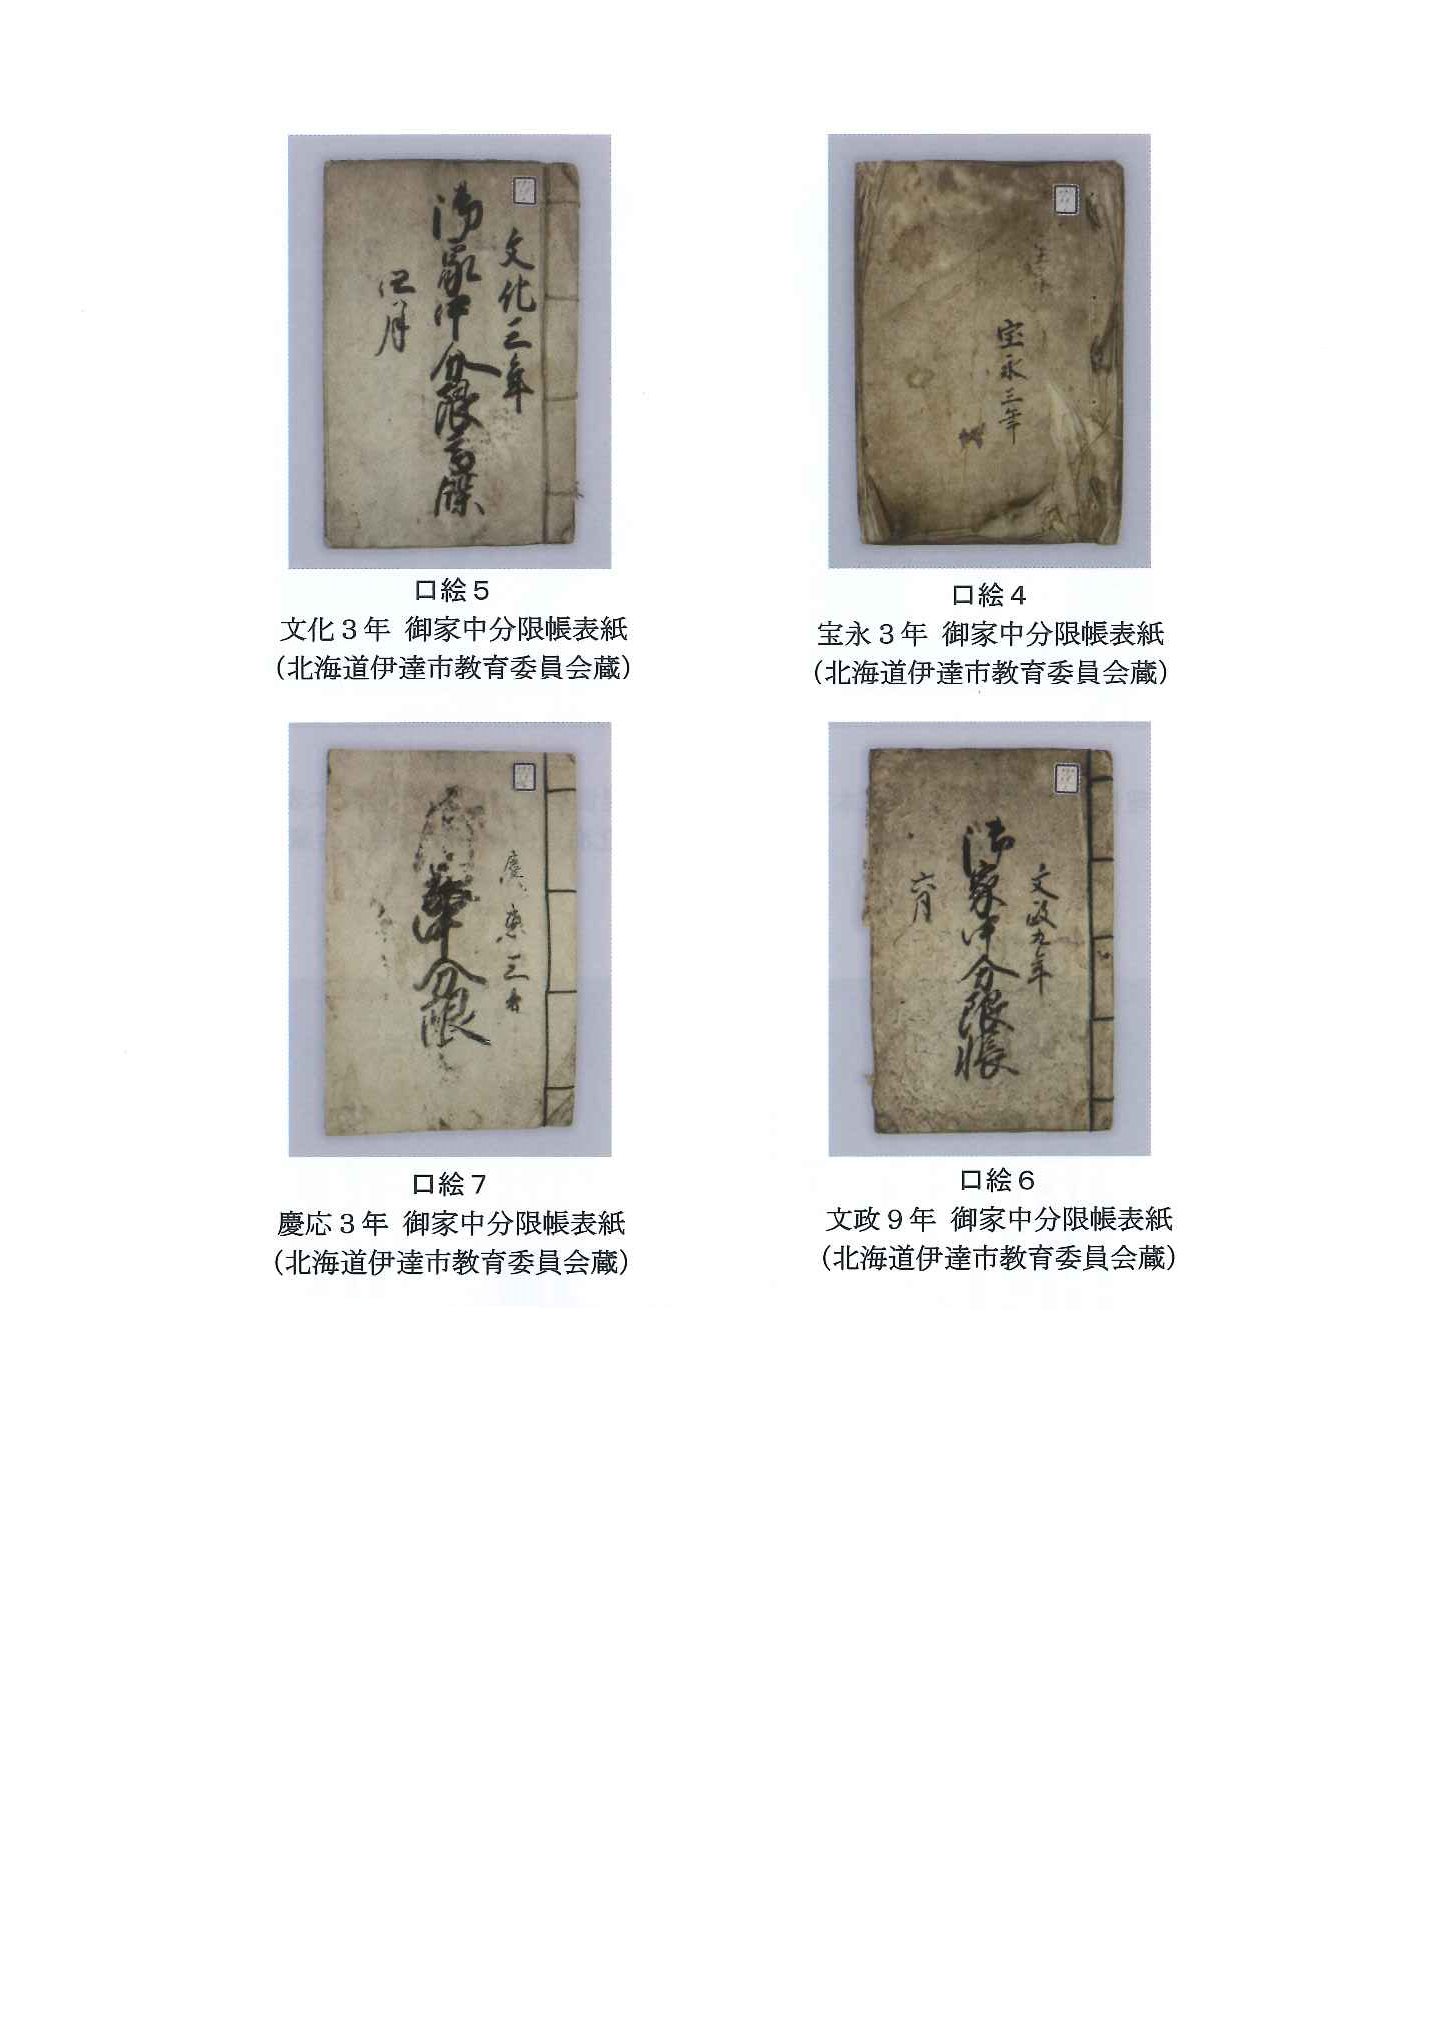 宝永三年
口絵４
宝永３年 御家中分限帳表紙
（北海道伊達市教育委員会蔵）
文化三年
御家中分限高牒
四月
口絵５
文化３年 御家中分限帳表紙
（北海道伊達市教育委員会蔵）
文政九年
御家中分限帳
六月
口絵６
文政９年 御家中分限帳表紙
（北海道伊達市教育委員会蔵）
慶應三
中分限
口絵７
慶応３年 御家中分限帳表紙
（北海道伊達市教育委員会蔵）